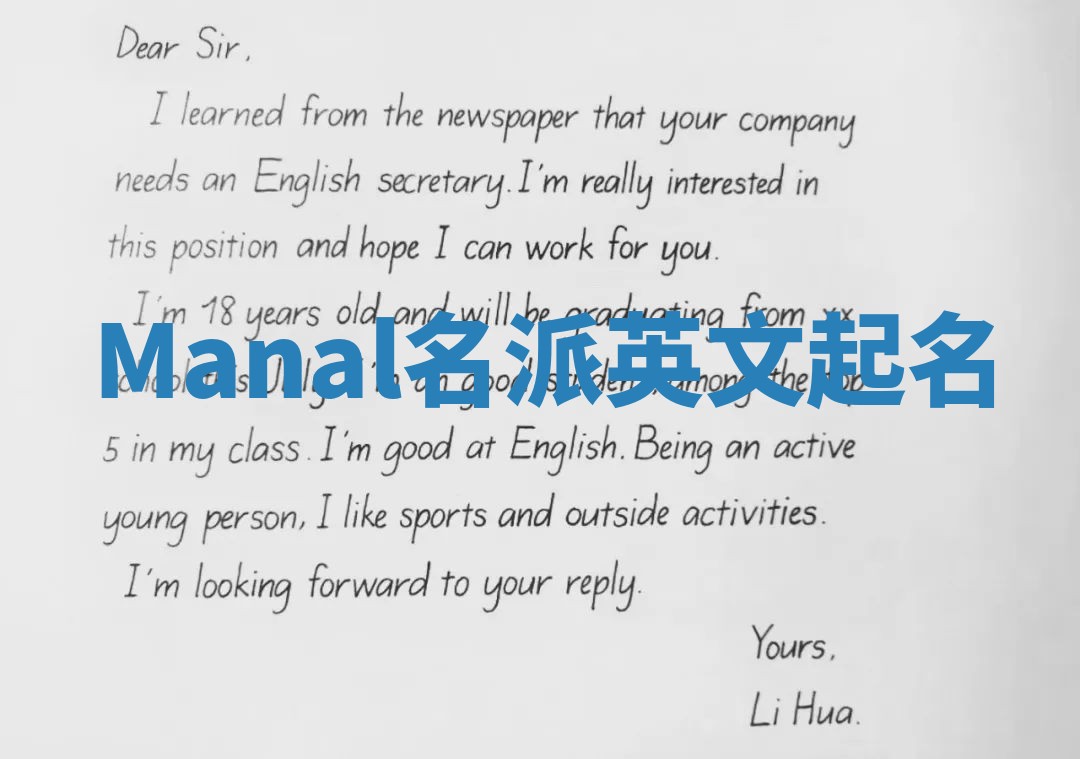 Dear Sir,
I learned from the newspaper that your company
needs an English secretary. I'm really interested in
this position and hope I can work for you.
I'm 18 years old and will be graduating from xx
Manal名派英文起名
school this July. I'm an good student, among the top
5 in my class. I'm good at English. Being an active
young person, I like sports and outside activities.
I'm looking forward to your reply.
Yours,
Li Hua.